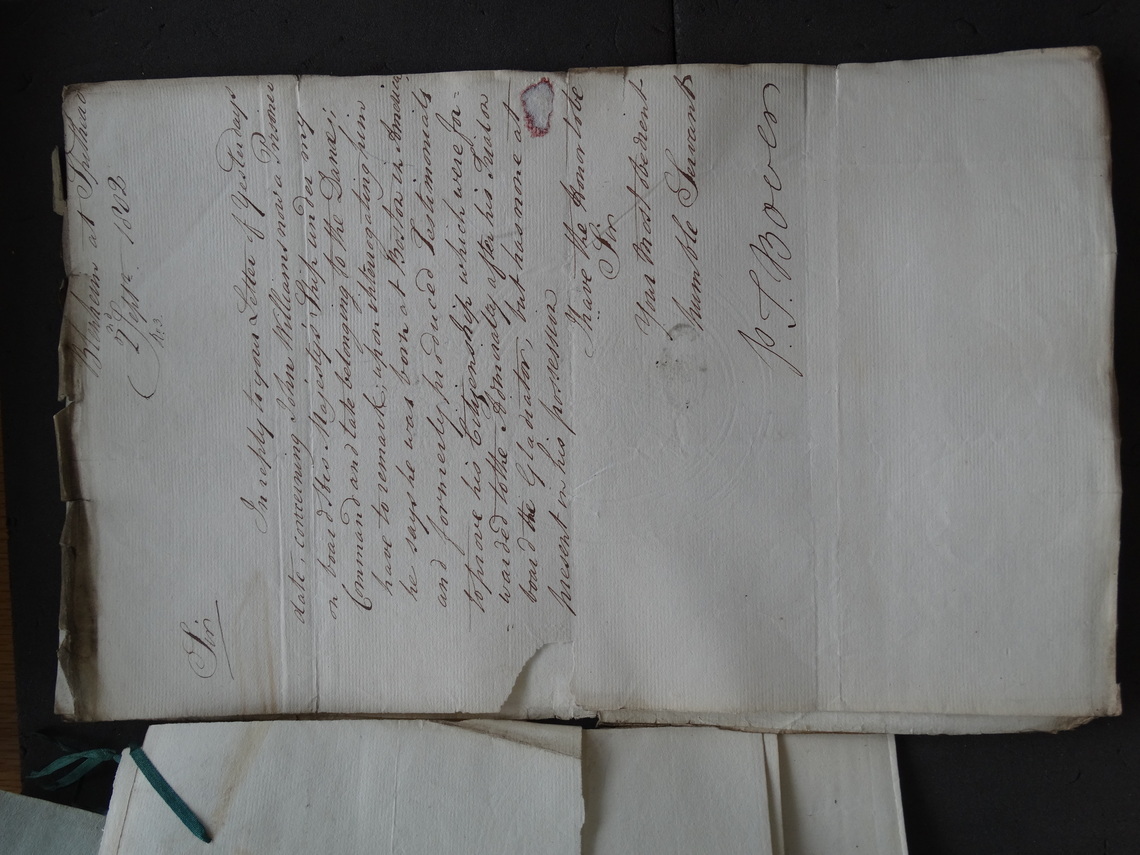 Blenheim at Spithead
2nd Septr. 1802
Sir
In reply to your Letter of Yesterdays
date, concerning John Williams now a Prisoner
on board His Majesty's Ship under my
Command and late belonging to the Danæ;
have to remark; upon interrogating him
he says he was born at Boston in America,
and formerly produced Testimonials
to prove his Citizenship which were for=
warded to the Admiralty after his Trial on
board the Gladiator, but has none at
present in his possession
I have the Honor to be
Sir
Your most obedient
humble Servant
P. T. Bover